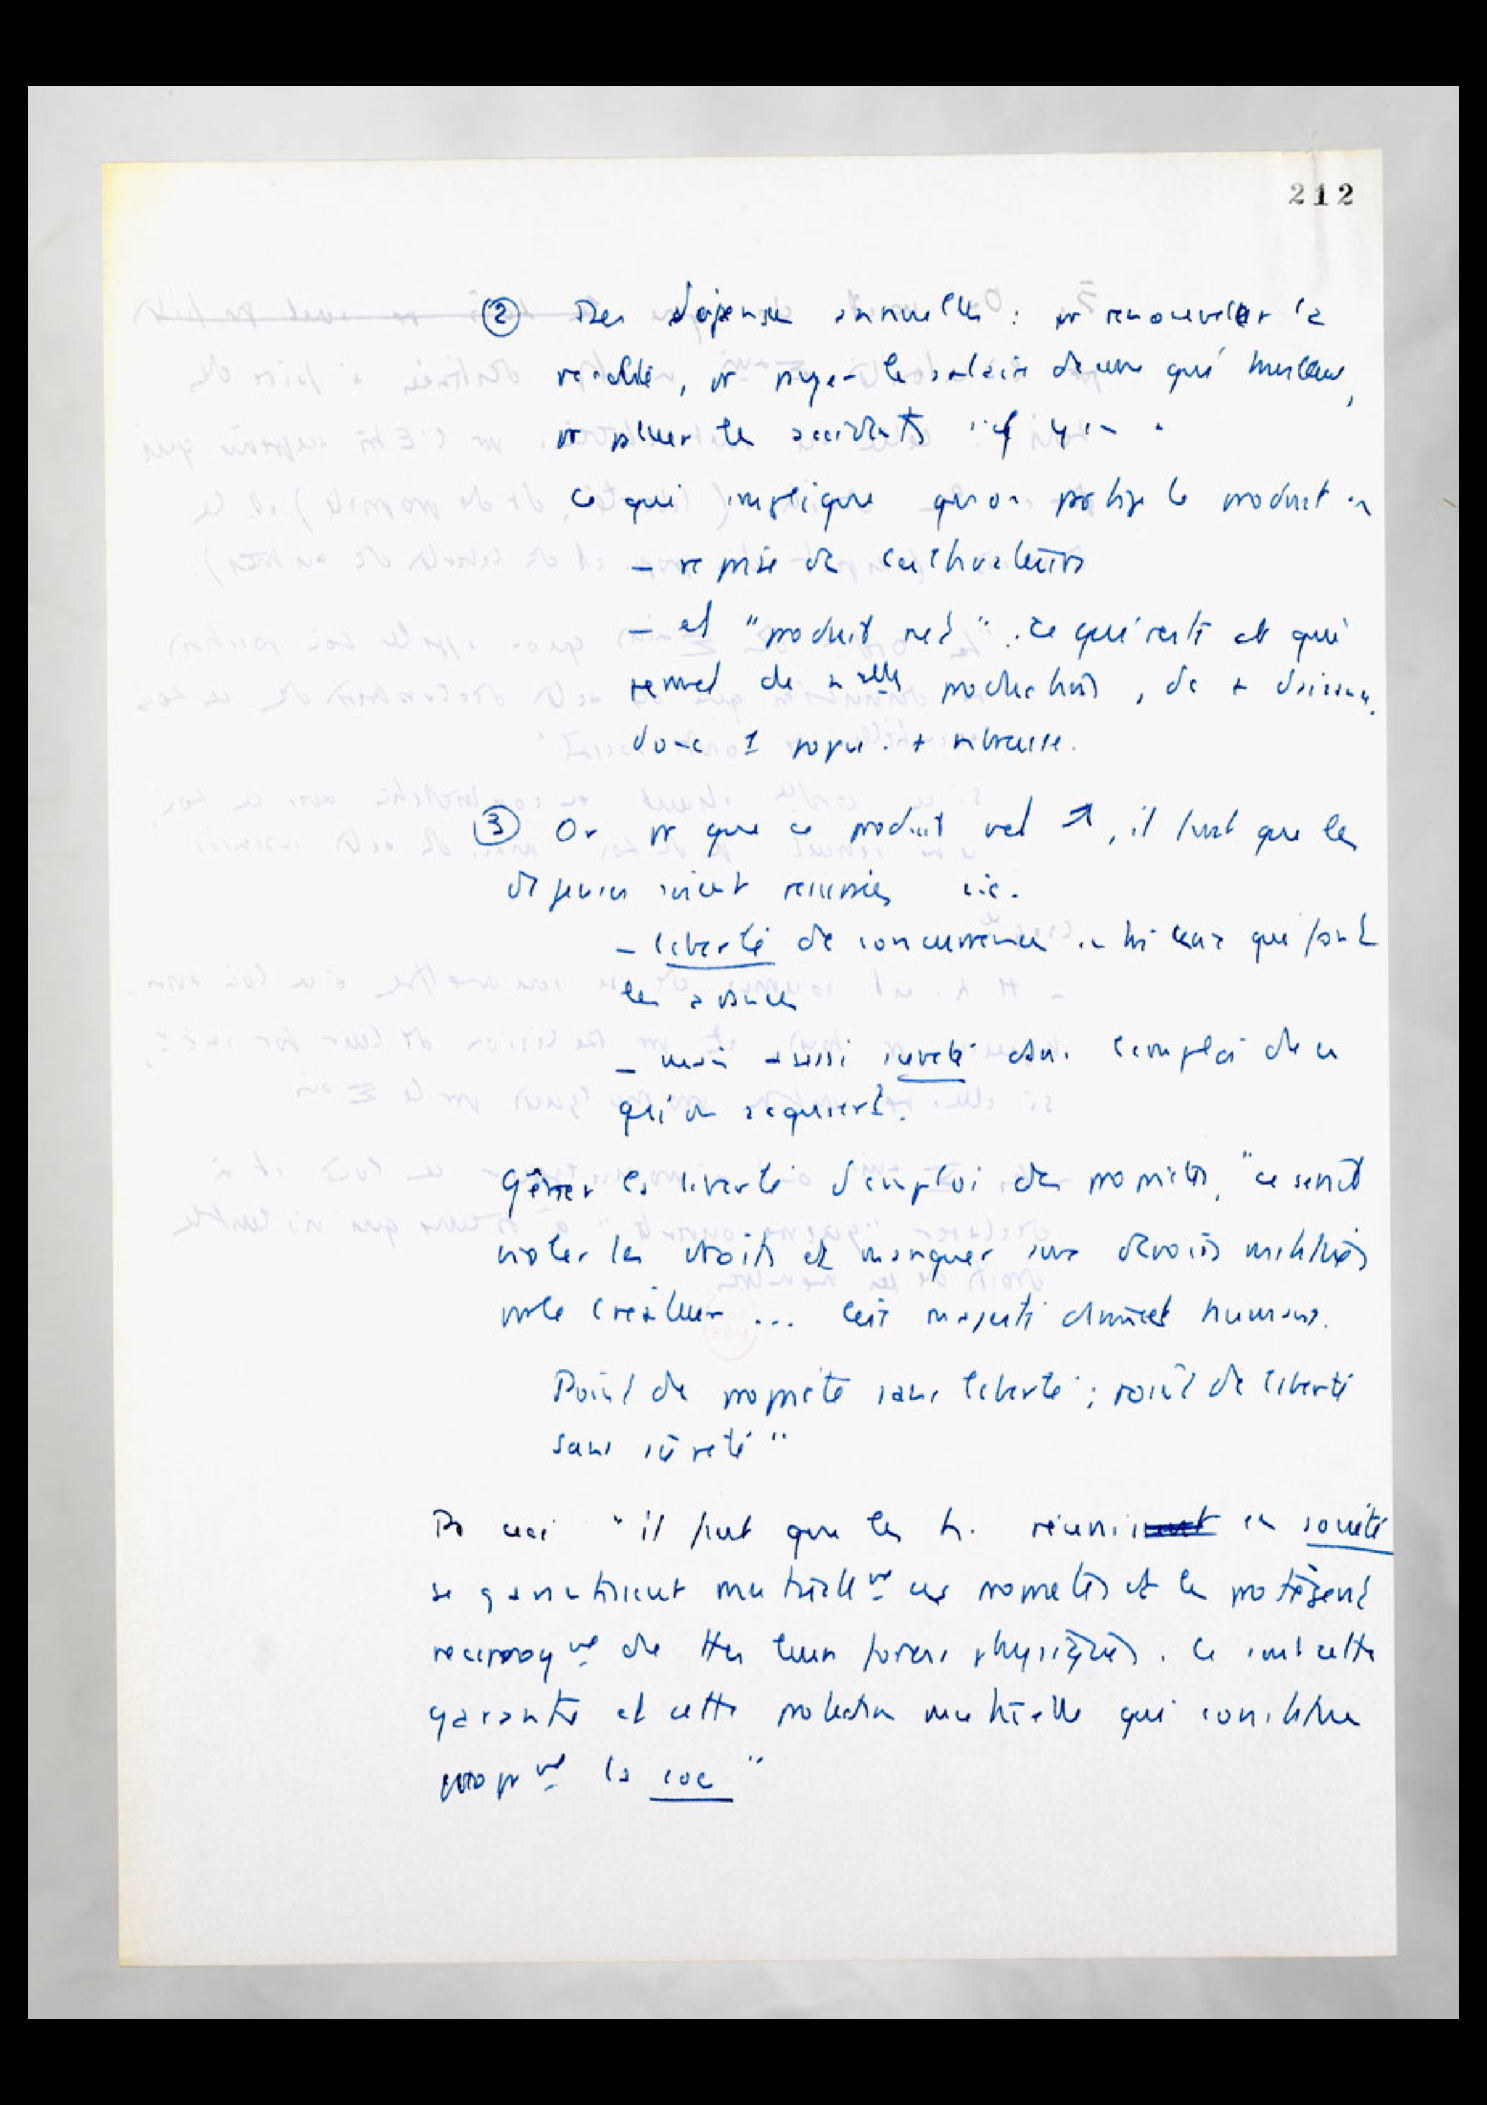 212
② Des dépenses annuelles : pr renouveler la
récolte, pr payer le salaire de ceux qui travaillent,
pr pallier les accidents s'il y en a.
Ce qui implique qu'on partage le produit en
– reprise de cultivateurs
– et "produit net". Ce qui reste et qui
permet de nelle production, de +
donc 1 popu. + nbreuse.
③ Or pr que ce produit net ↗, il faut que les
dépenses soient assurées càd.
– liberté de concurrence entre ceux qui font
les avances
– mais aussi sureté dans l'emploi de ce
qu'on acquiert.
Gêner la liberté d'emploi des propriétés, "ce serait
violer les droits et manquer aux devoirs institués
par le Créateur ... Lèse majesté divine et humaine.
Point de propriété sans liberté ; point de liberté
sans sûreté"
Pr ceci "il faut que les h. réunis en société
se garantissent mutuellmt ces propriétés et les protègent
réciproqmt de ttes leurs forces physiques. Ce sont cette
garantie et cette protection mutuelle qui constitue
proprmt la soc"